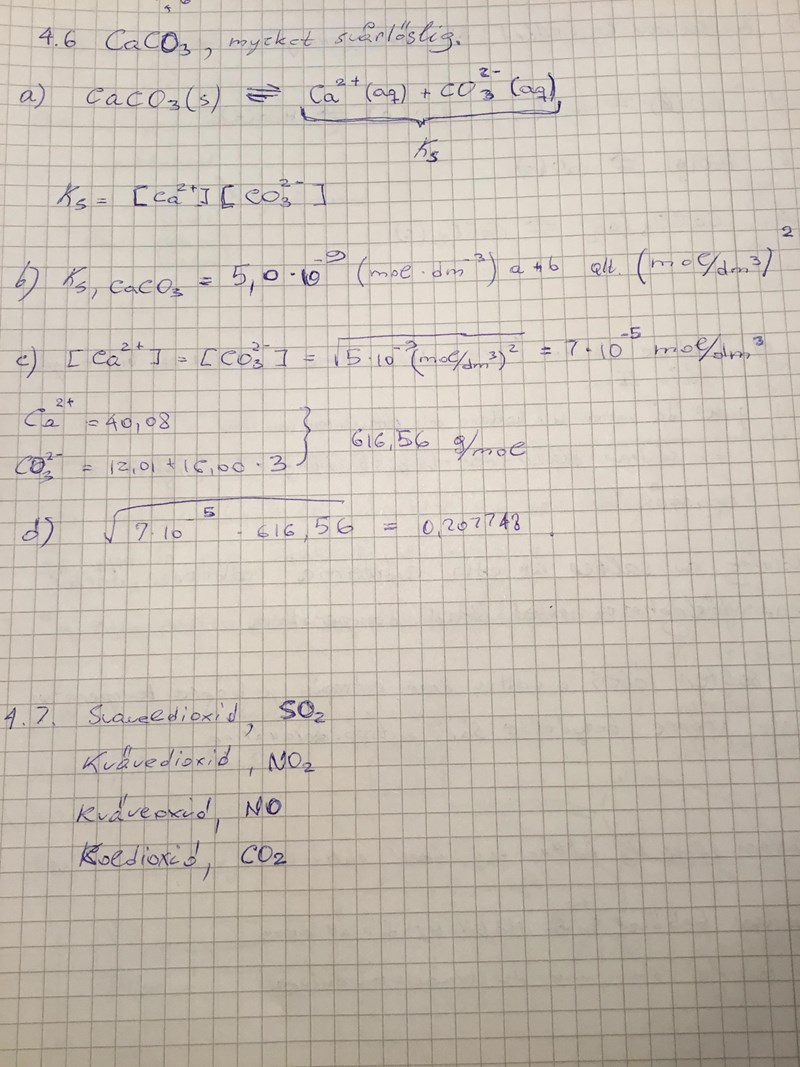 4.6 CaCO3, mycket svårlöslig.
a) CaCO3(s) ⇌ Ca2+(aq) + CO3 2-(aq)
Ks
Ks = [Ca2+][CO3 2-]
b) Ks, CaCO3 = 5,0·10-9 (mol·dm-3) a+b alt. (mol/dm3)2
c) [Ca2+] = [CO3 2-] = √5·10-9(mol/dm3)2 = 7·10-5 mol/dm3
Ca2+ = 40,08
CO3 2- = 12,01 + 16,00·3 } 616,56 g/mol
d) √7·10-5 · 616,56 = 0,207748.
4.7. Svaveldioxid, SO2
Kvävedioxid, NO2
Kväveoxid, NO
Koldioxid, CO2